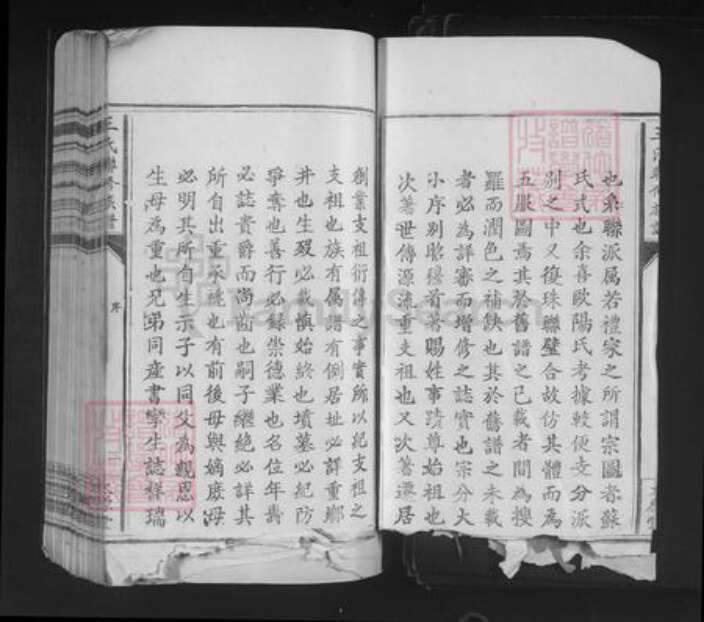 也系聯派属若禮家之所謂宗圖者蘇
氏式也余喜歐陽氏考據較便支分派
別之中又復珠聯璧合故仿其體而為
五服圖焉其於舊譜之已載者間為搜
羅而潤色之補缺也其於舊譜之未載
者必為詳審而增修之誌實也宗分大
小序別昭穆首著賜姓事蹟尊始祖也
次著世傳源流重支祖也又次著遷居
創業支祖衍傳之事實所以紀支祖之
支祖也族有属譜有例居址必詳重鄉
井也生歿必載慎始終也墳墓必紀防
爭奪也善行必錄崇德業也名位年壽
必誌貴爵而尚齒也嗣子繼絶必詳其
所自出重承繼也有前後母與嫡庶母
必明其所自生示子以同父為親恩以
生母為重也兄弟同產書孿生誌祥瑞
王氏聯修族譜
序
FamilySearch